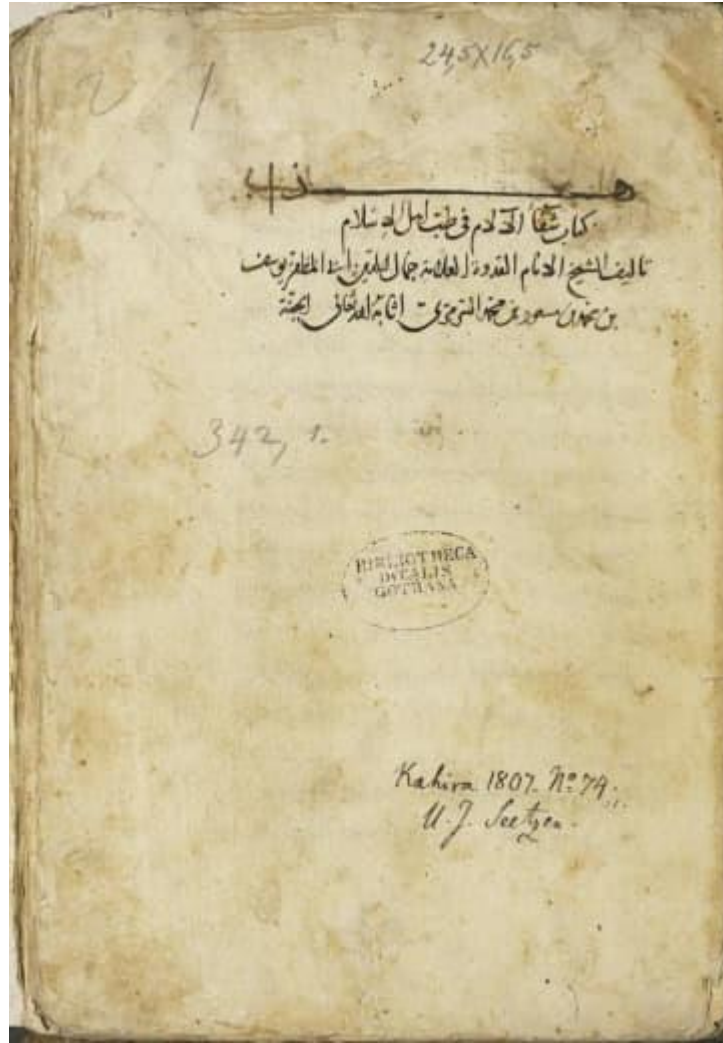 24,5X16,5
2 1
هـــذا
كتاب شفأ الآلام في طب اهل الاسلام
تاليف الشيخ الامام القدوة العلامة جمال الدين ابى المظفر يوسف
بن محمد بن مسعود بن محمد السرمرى اثابه الله تعالى الجنة
342, 1.
BIBLIOTHECA
DUCALIS
GOTHANA
Kahira 1807. No 74.
U. J. Seetzen.